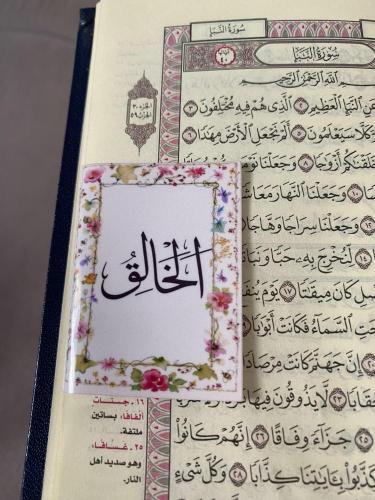 سُورَةُ النَّبَإِ
سُورَةُ النَّبَإِ
بِسْمِ اللَّهِ الرَّحْمَٰنِ الرَّحِيمِ
الجزء ٣٠
الحزب ٥٩
عَنِ النَّبَإِ الْعَظِيمِ ٢ الَّذِي هُمْ فِيهِ مُخْتَلِفُونَ
كَلَّا سَيَعْلَمُونَ ٥ أَلَمْ نَجْعَلِ الْأَرْضَ مِهَادًا ٦
وَخَلَقْنَاكُمْ أَزْوَاجًا ٨ وَجَعَلْنَا نَوْمَكُمْ
وَجَعَلْنَا النَّهَارَ مَعَاشًا
وَجَعَلْنَا سِرَاجًا وَهَّاجًا
١٤ لِّنُخْرِجَ بِهِ حَبًّا وَنَبَاتًا
كَانَ مِيقَاتًا ١٧ يَوْمَ يُنفَخُ
السَّمَاءُ فَكَانَتْ أَبْوَابًا
إِنَّ جَهَنَّمَ كَانَتْ مِرْصَادًا
لَّا يَذُوقُونَ فِيهَا
جَزَاءً وِفَاقًا ٢٦ إِنَّهُمْ كَانُوا
بِآيَاتِنَا كِذَّابًا ٢٨ وَكُلَّ شَيْءٍ
الْخَالِقُ
١٦. جنات
ألفافا، بساتين
ملتفة.
٢٥. غساقا،
وهو صديد أهل
النار.